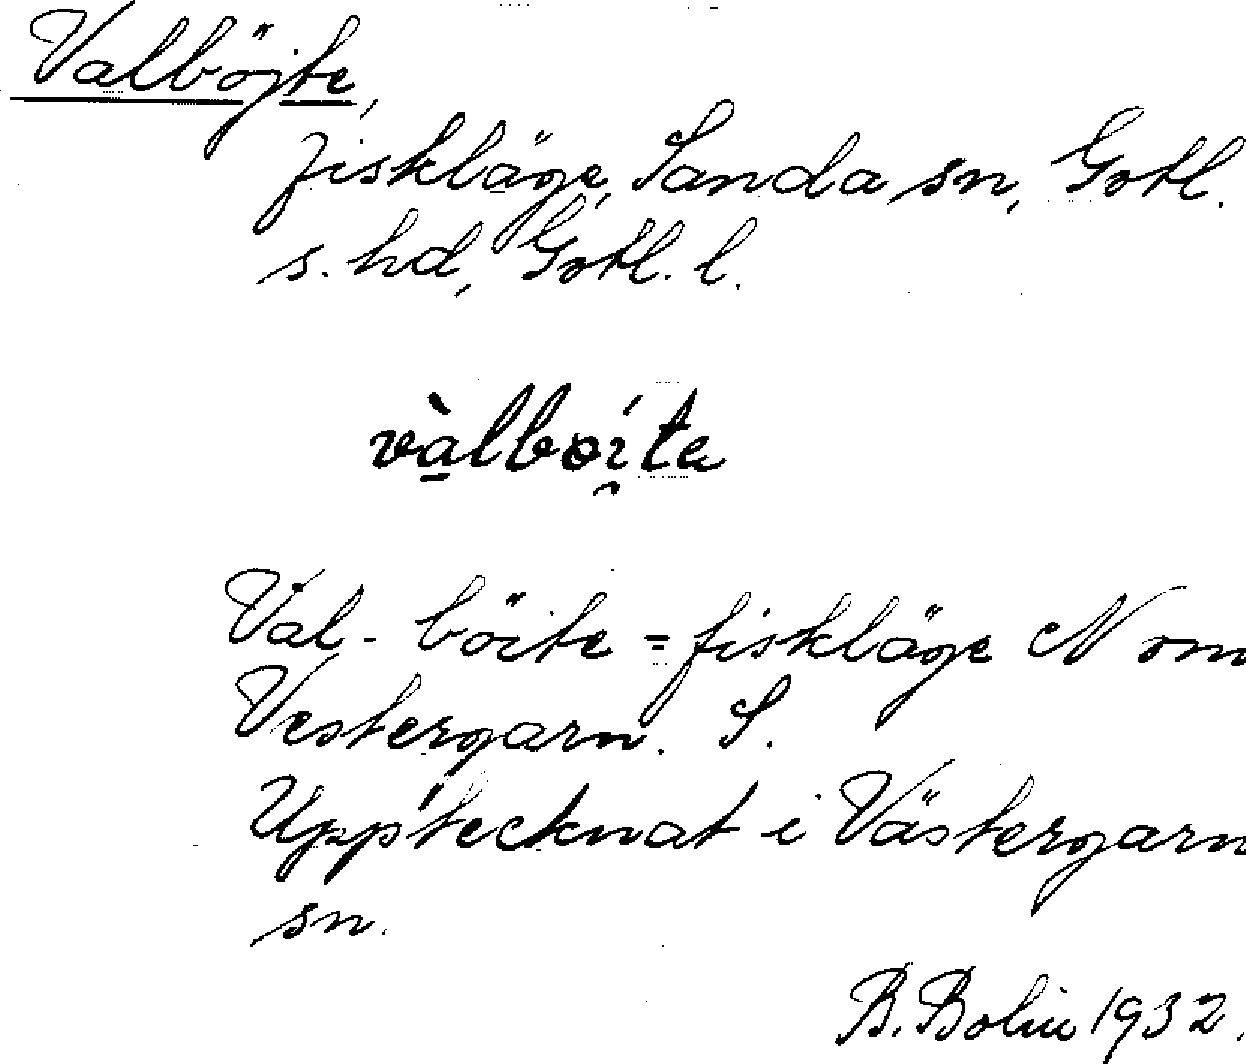 Valböjte,
fiskläge, Sanda sn, Gotl.
s. hd, Gotl. l.
vàlboi̯ta
Val-böite = fiskläge N om
Vestergarn. S.
Upptecknat i Västergarn
sn.
B. Bolin 1932.